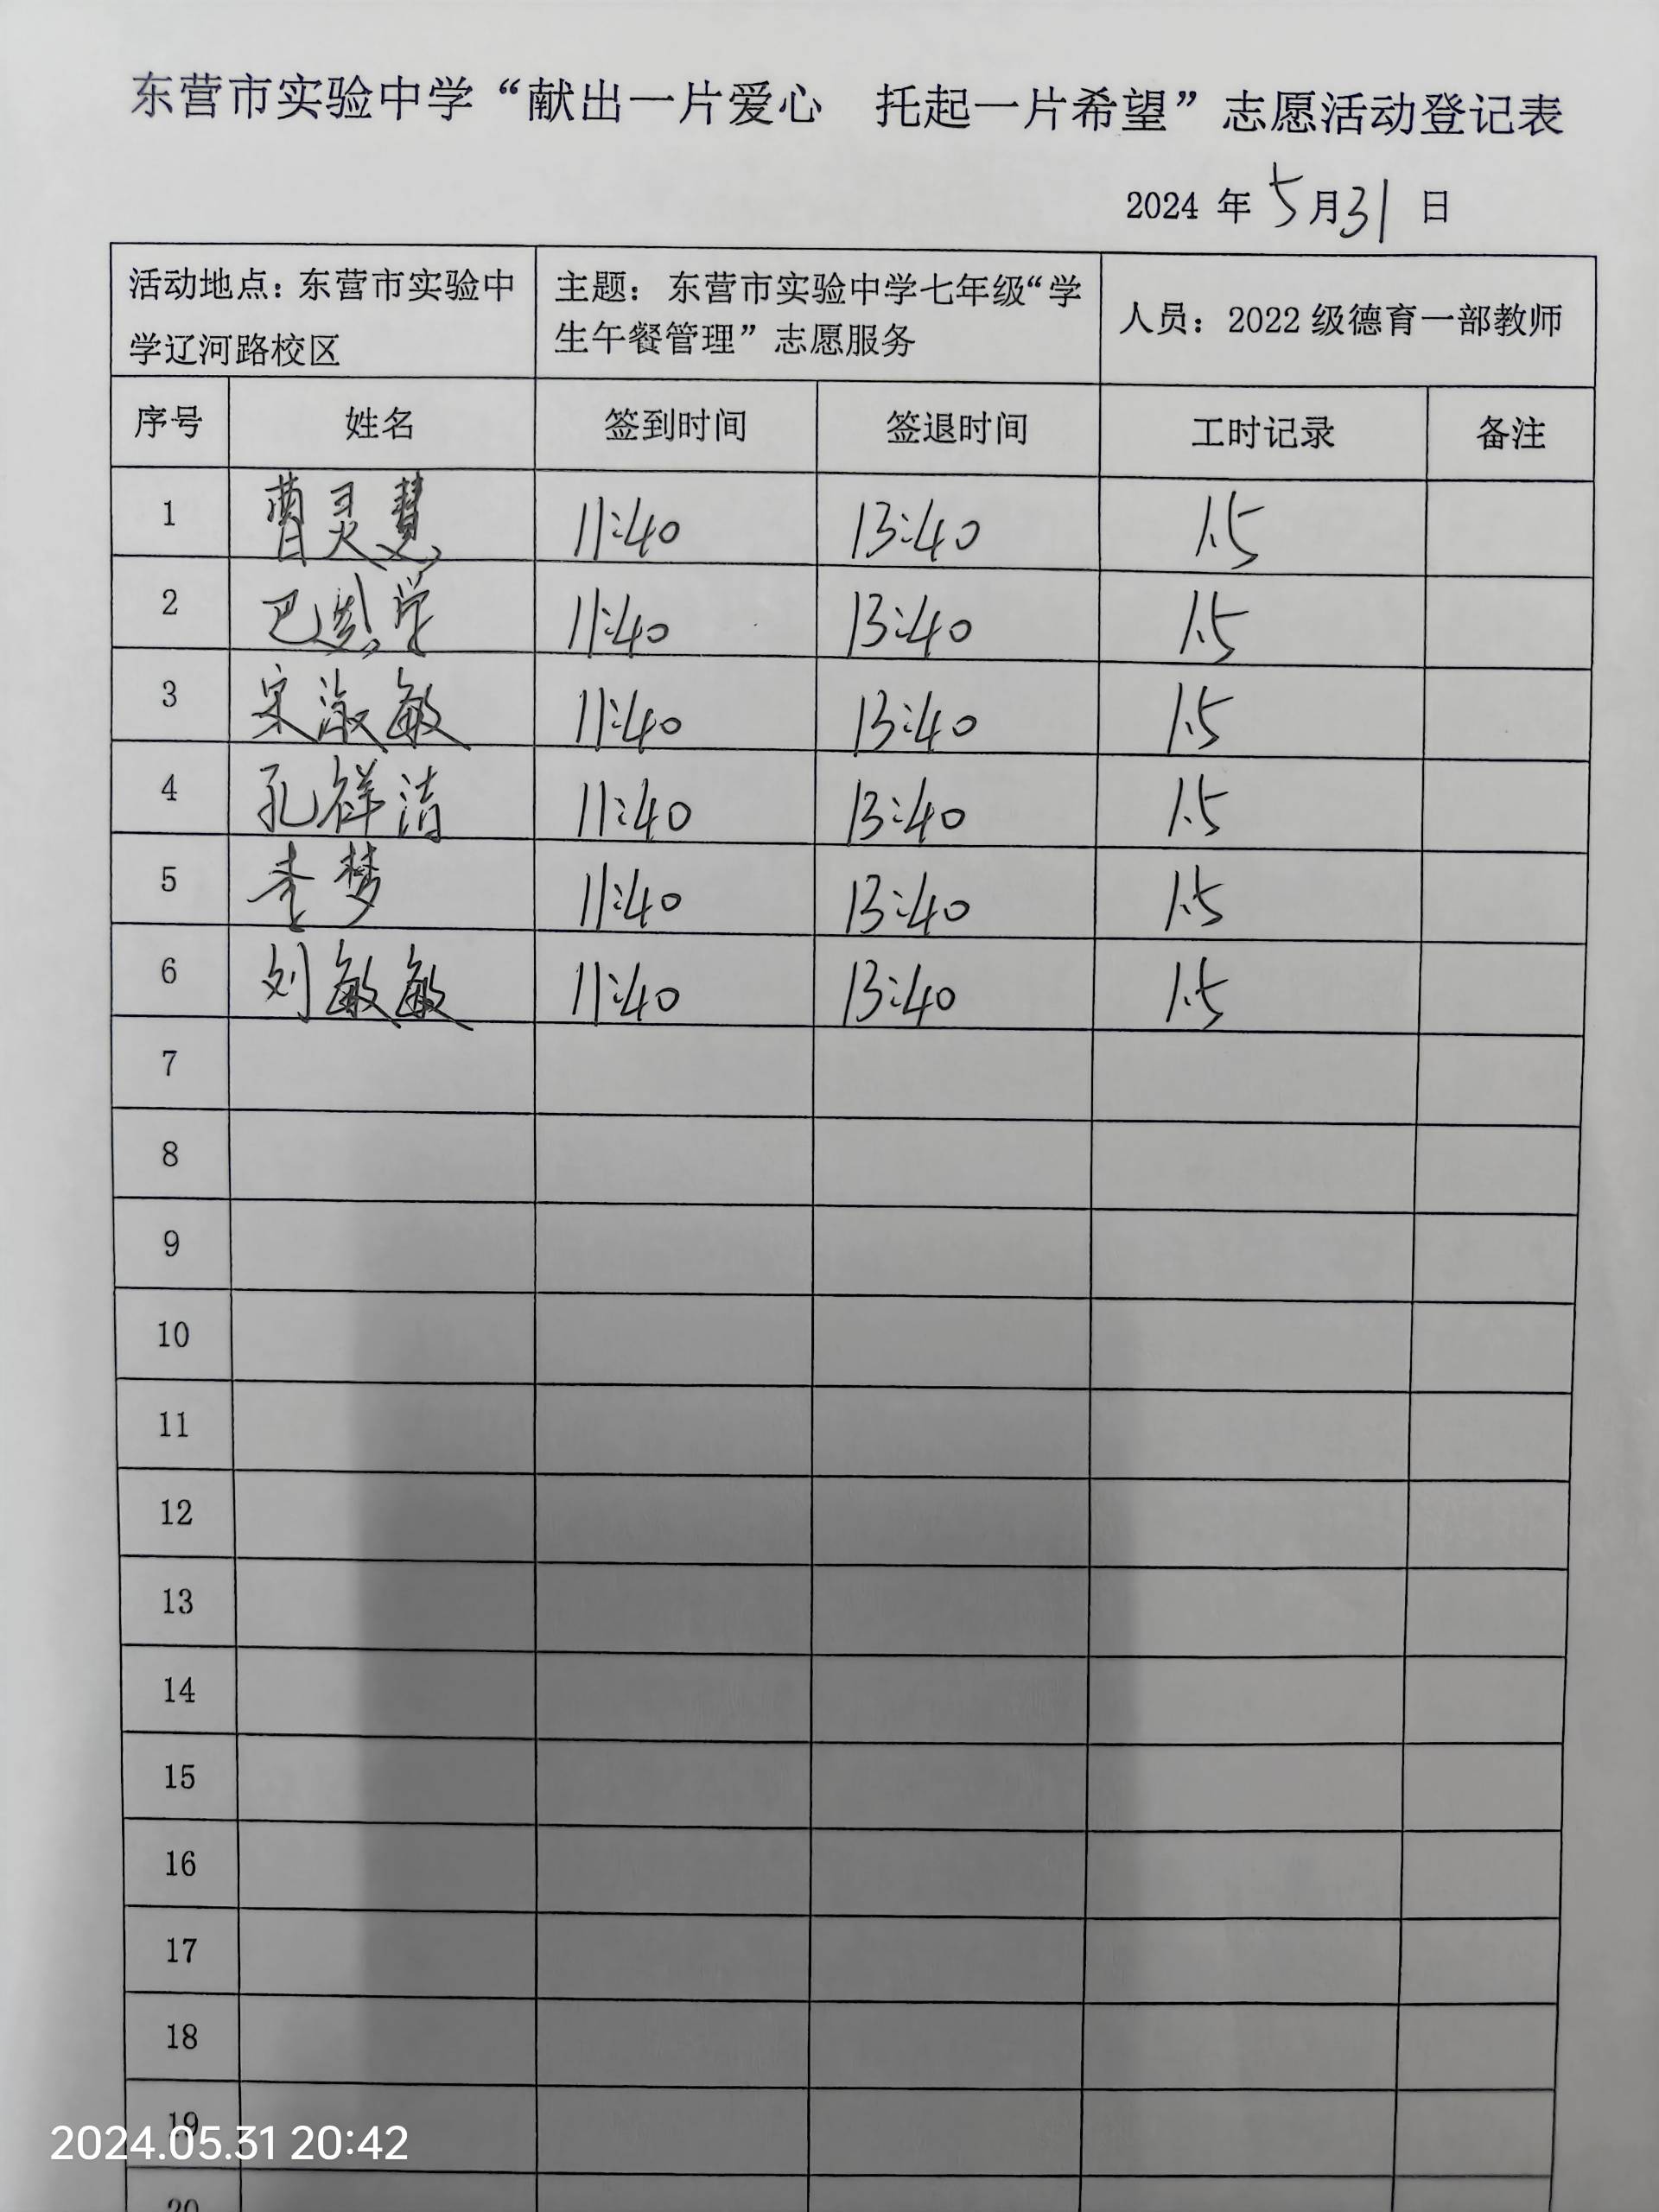 东营市实验中学“献出一片爱心 托起一片希望”志愿活动登记表
2024 年 5 月 31 日
活动地点：东营市实验中
学辽河路校区
主题：东营市实验中学七年级“学
生午餐管理”志愿服务
人员：2022 级德育一部教师
序号 姓名 签到时间 签退时间 工时记录 备注
1 曹灵慧 11:40 13:40 1.5
2 巴 学 11:40 13:40 1.5
3 宋淑敏 11:40 13:40 1.5
4 孔祥洁 11:40 13:40 1.5
5 李梦 11:40 13:40 1.5
6 刘敏敏 11:40 13:40 1.5
7
8
9
10
11
12
13
14
15
16
17
18
19
20
2024.05.31 20:42